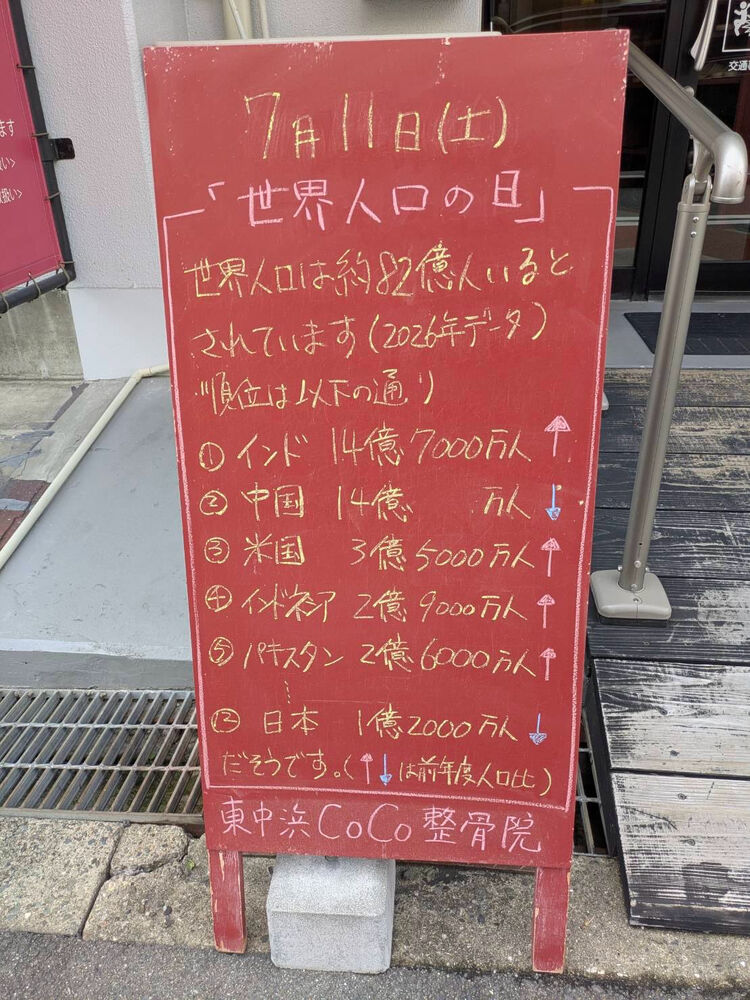 7月11日(土)
「世界人口の日」
世界人口は約82億人いると
されています(2026年データ)
順位は以下の通り
① インド 14億 7000万人 ↑
② 中国 14億 万人 ↓
③ 米国 3億 5000万人 ↑
④ インドネシア 2億 9000万人 ↑
⑤ パキスタン 2億 6000万人 ↑
⑫ 日本 1億 2000万人 ↓
だそうです。(↑↓は前年度人口比)
東中浜CoCo整骨院
ます
扱い>
交通